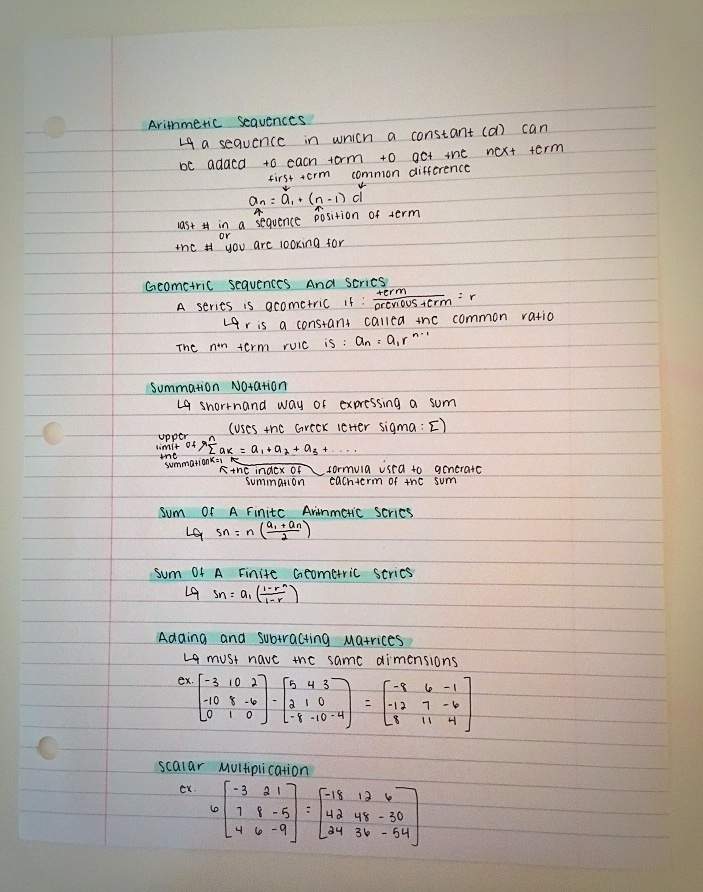 Arithmetic Sequences
↳ a sequence in which a constant (d) can
be added to each term to get the next term
first term common difference
an = a₁ + (n-1) d
last # in a sequence position of term
or
the # you are looking for
Geometric Sequences And Series
A series is geometric if : term/previous term = r
↳ r is a constant called the common ratio
The nth term rule is : an = a₁rⁿ⁻¹
Summation Notation
↳ shorthand way of expressing a sum
(uses the Greek letter sigma : Σ)
upper limit of the summation n Σ k=1 ak = a₁ + a₂ + a₃ + ....
the index of summation formula used to generate each term of the sum
Sum Of A Finite Arithmetic Series
↳ sn = n (a₁ + an/2)
Sum Of A Finite Geometric Series
↳ sn = a₁ (1-rⁿ/1-r)
Adding and Subtracting Matrices
↳ must have the same dimensions
ex. [-3 10 2] - [5 4 3] = [-8 6 -1]
[-10 8 -6] [2 1 0] [-12 7 -6]
[0 1 0] [-8 -10 -4] [8 11 4]
Scalar Multiplication
ex. [-3 2 1] = [-18 12 6]
6 [7 8 -5] [42 48 -30]
[4 6 -9] [24 36 -54]